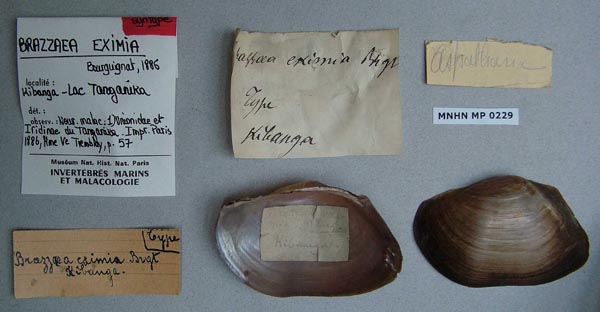 syntype
BRAZZAEA EXIMIA
Bourguignat, 1886
localité :
Kibanga - Lac Tanganika
dét. :
observ. : Nouv. malac. : Unionidae et
Iridinae du Tanganika. Impr. Paris
1886, Mme Ve Tremblay, p. 57
Muséum Nat. Hist. Nat. Paris
INVERTEBRÉS MARINS
ET MALACOLOGIE
Brazzaea eximia Bgt
Type
Kibanga
Aspatharia
MNHN MP 0229
Type
Brazzaea eximia Brgt
Kibanga.
Kibanga